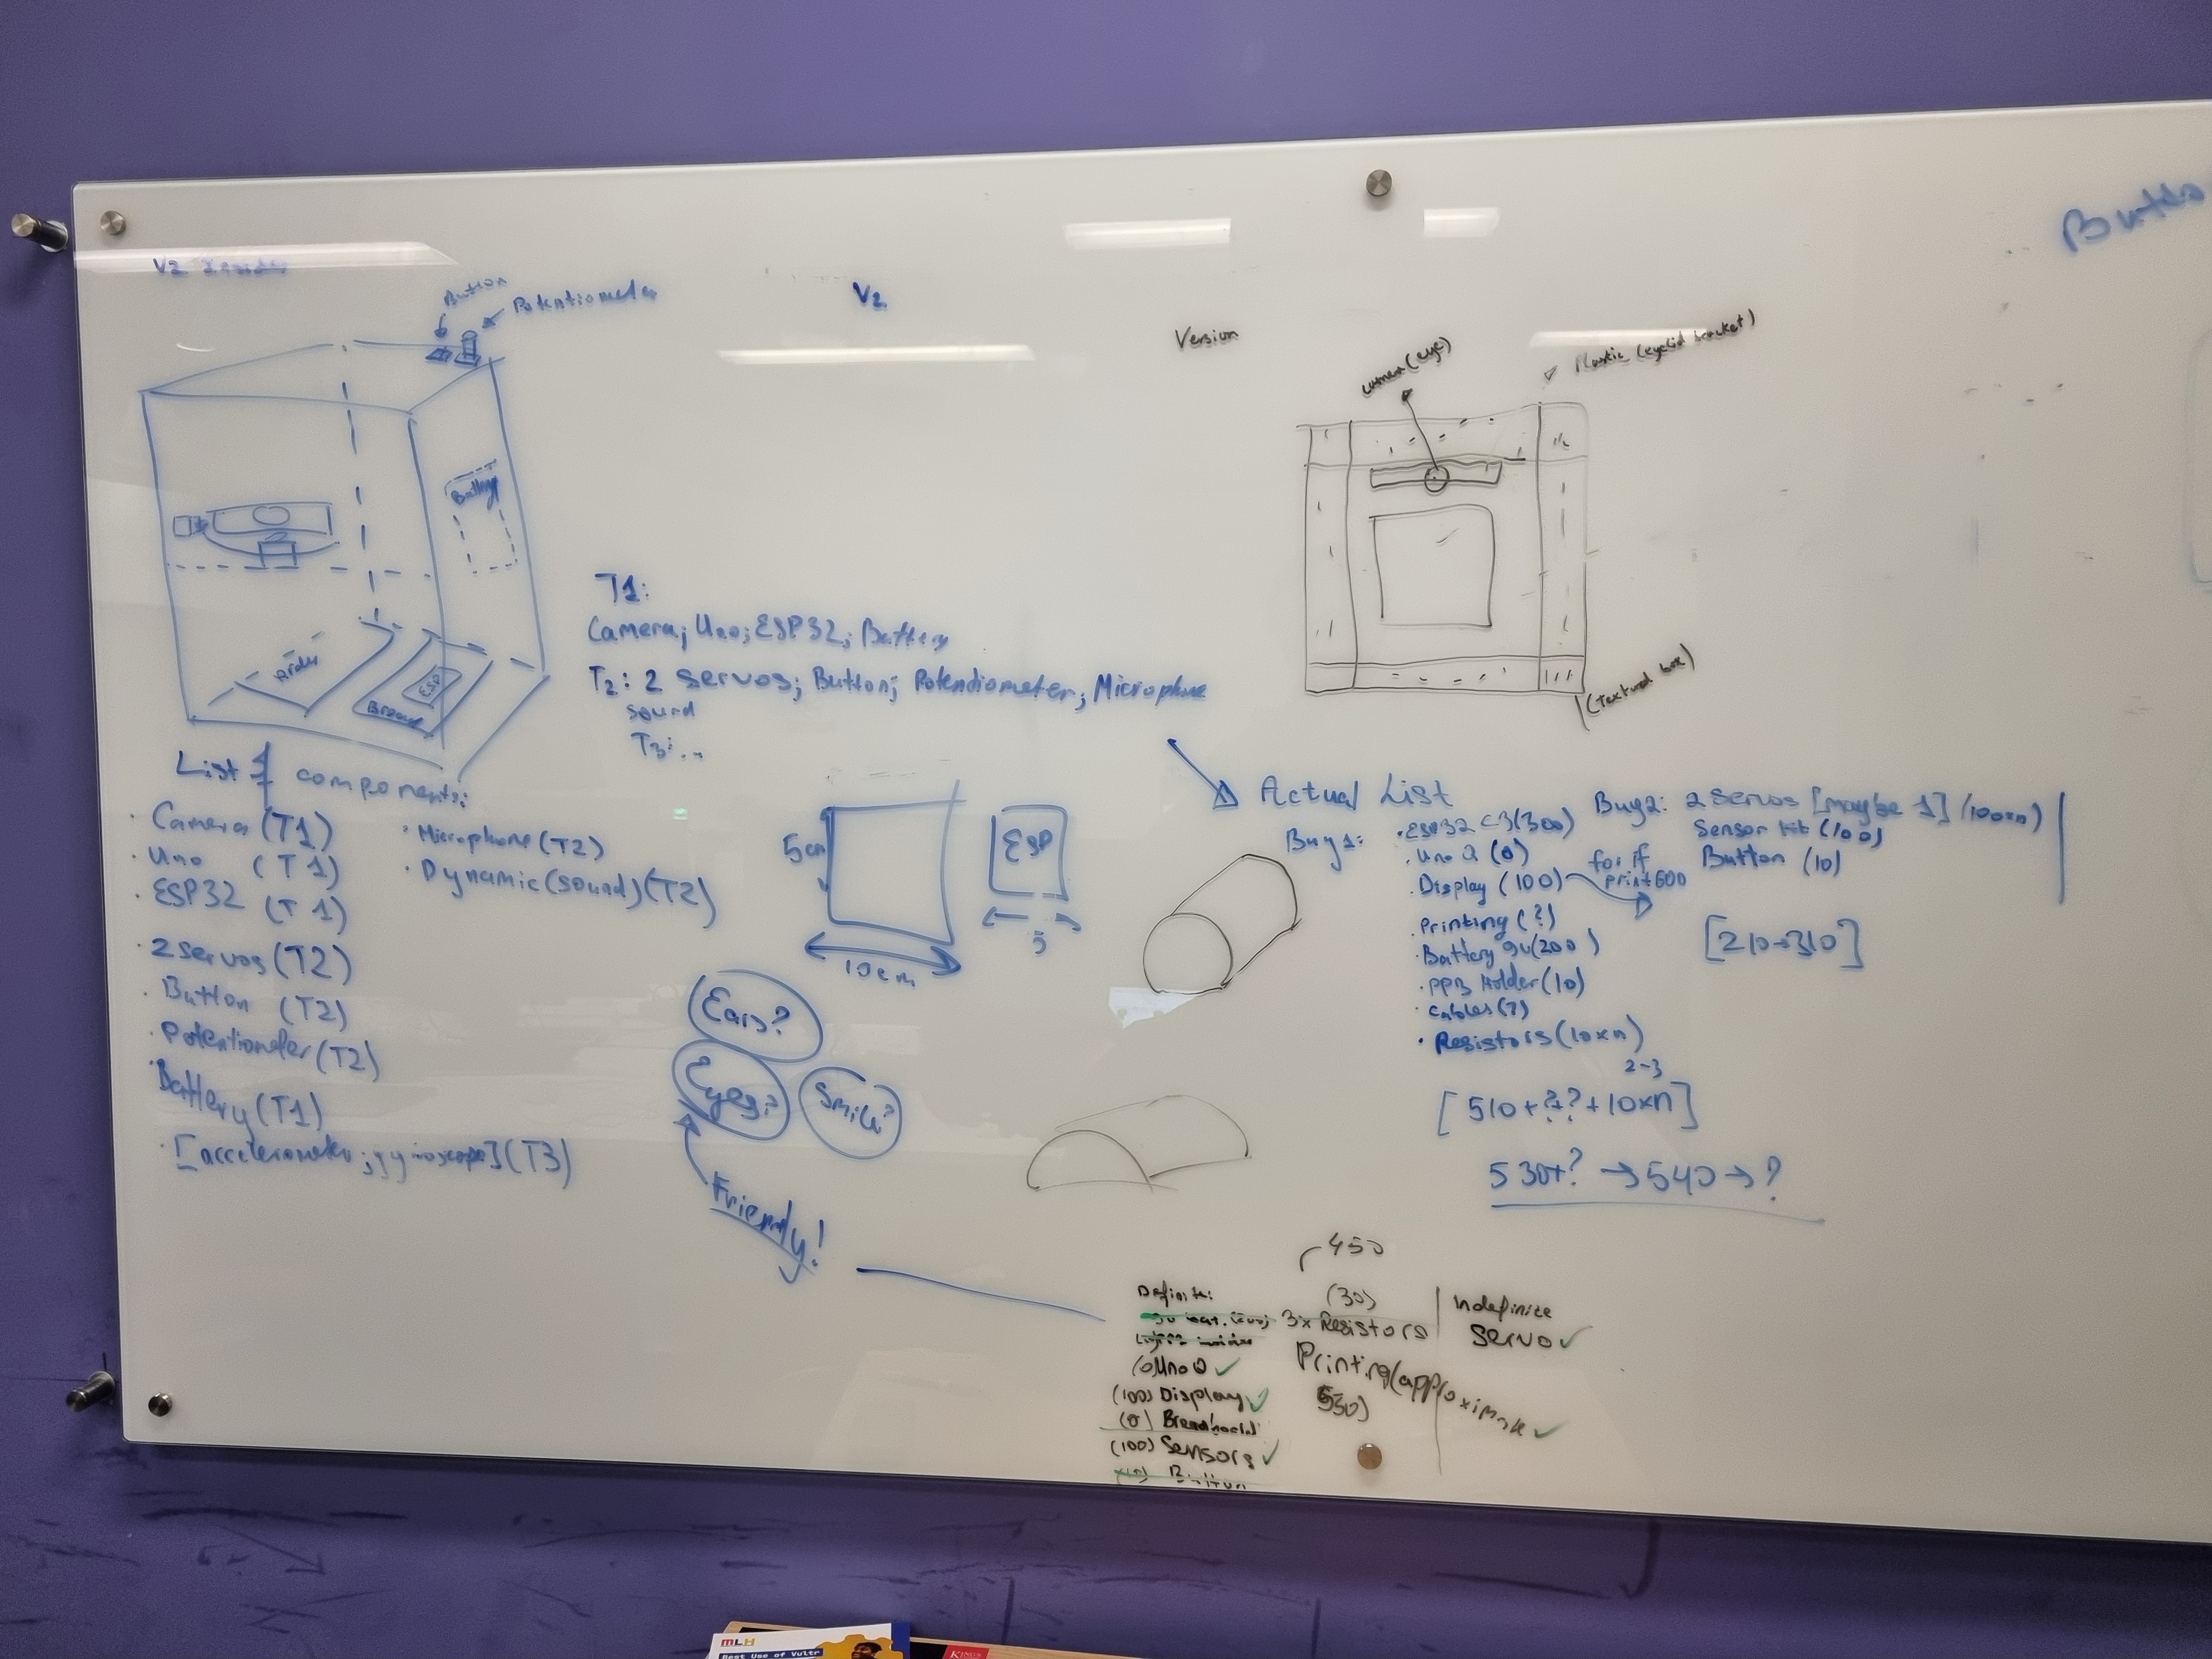 V2 Inside
Button
Potentiometer
Battery
ESP
V2
T1:
Camera; Uno; ESP32; Battery
T2: 2 servos; Button; Potendiometer; Microphone
sound
T3: ...
Version
camera (eye)
Plastic (eyelid bracket)
(textured box)
List of components:
· Camera (T1)
· Uno (T1)
· ESP32 (T1)
· 2 servos (T2)
· Button (T2)
· Potentiometer (T2)
· Battery (T1)
· [accelerometer; gyroscope] (T3)
· Microphone (T2)
· Dynamic (sound) (T2)
5cm
10cm
ESP
5
Ears?
Eyes?
Smile?
Friendly!
Actual List
Buy1:
· ESP32 C3 (300)
· Uno Q (0)
· Display (100)
· Printing (?)
· Battery 9v (200)
· PPB Holder (10)
· cables (?)
· Resistors (10xn)
2-3
[510+?+?+10xn]
530+? → 540 → ?
for if
print 600
Buy2: 2 servos [maybe 1] (100xn)
Sensor kit (100)
Button (10)
[210→310]
450
Definite:
(0) Uno Q ✓
(100) Display ✓
(0) Breadboard
(100) Sensors ✓
Button
(30)
3x Resistors
Printing (approximate ✓
550)
Indefinite
Servo ✓
MLH
Best Use of Vultr
KINGS